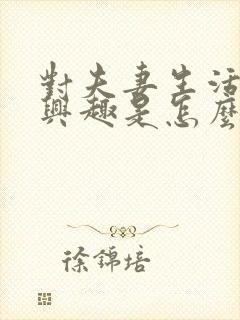 對夫妻生活
興趣是怎麼
徐錦培